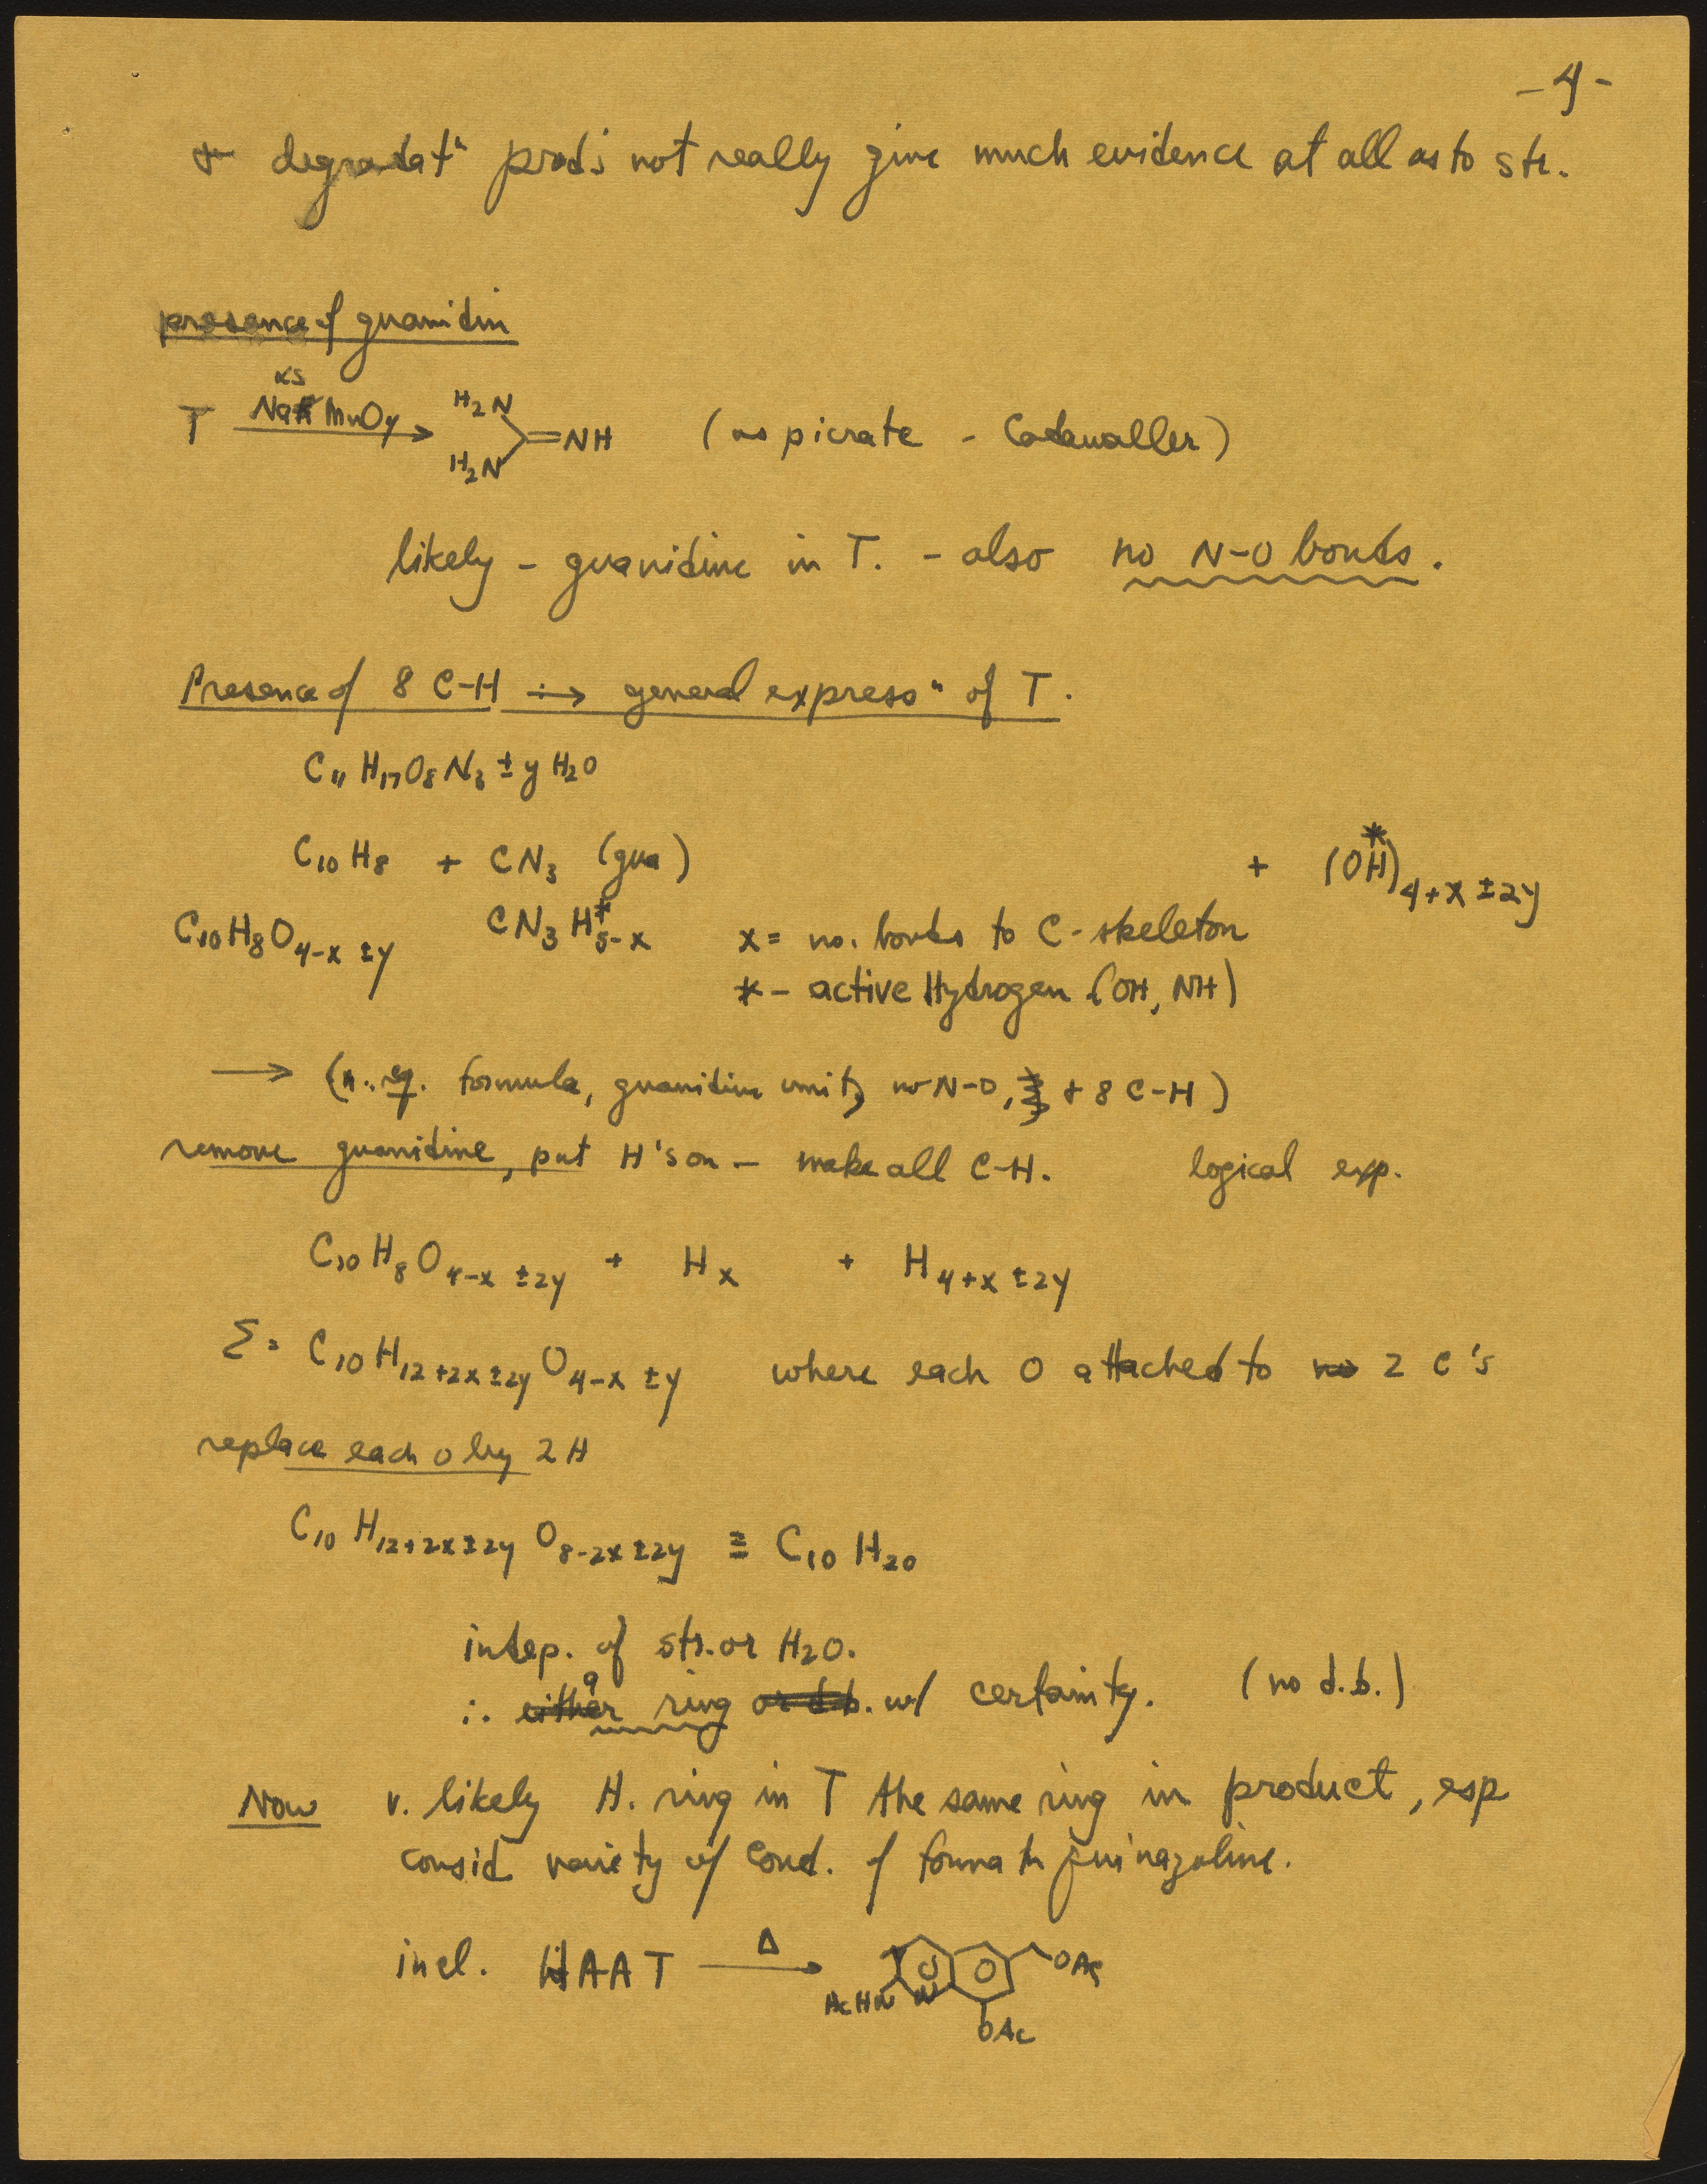 -4-
+ degradatn prods not really give much evidence at all as to str.
presence of guanidin
xs
T NaMnO4 → H2N H2N =NH (as picrate - Cadawaller)
likely - guanidine in T. - also no N-O bonds.
Presence of 8 C-H ∴→ general expressn of T.
C11H17O8N3 ± y H2O
C10H8 + CN3 (gua) + (OH*)4+x±2y
C10H8O4-x±y CN3H*5-x x = no. bonds to C-skeleton
* - active Hydrogen (OH, NH)
→ ( formula, guanidine unit, no N-O, + 8 C-H)
remove guanidine, put H's on - make all C-H. logical exp.
C10H8O4-x±2y + Hx + H4+x±2y
Σ = C10H12+2x±2yO4-x±y where each O attached to no 2 C's
replace each O by 2 H
C10H12+2x±2yO8-2x±2y ≡ C10H20
indep. of str. or H2O.
∴ either a ring or d.b. w/ certainty. (no d.b.)
Now v. likely H. ring in T the same ring in product, esp
consid variety of cond. of formatn quinazoline.
incl. HAAT Δ → AcHN N OAc OAc